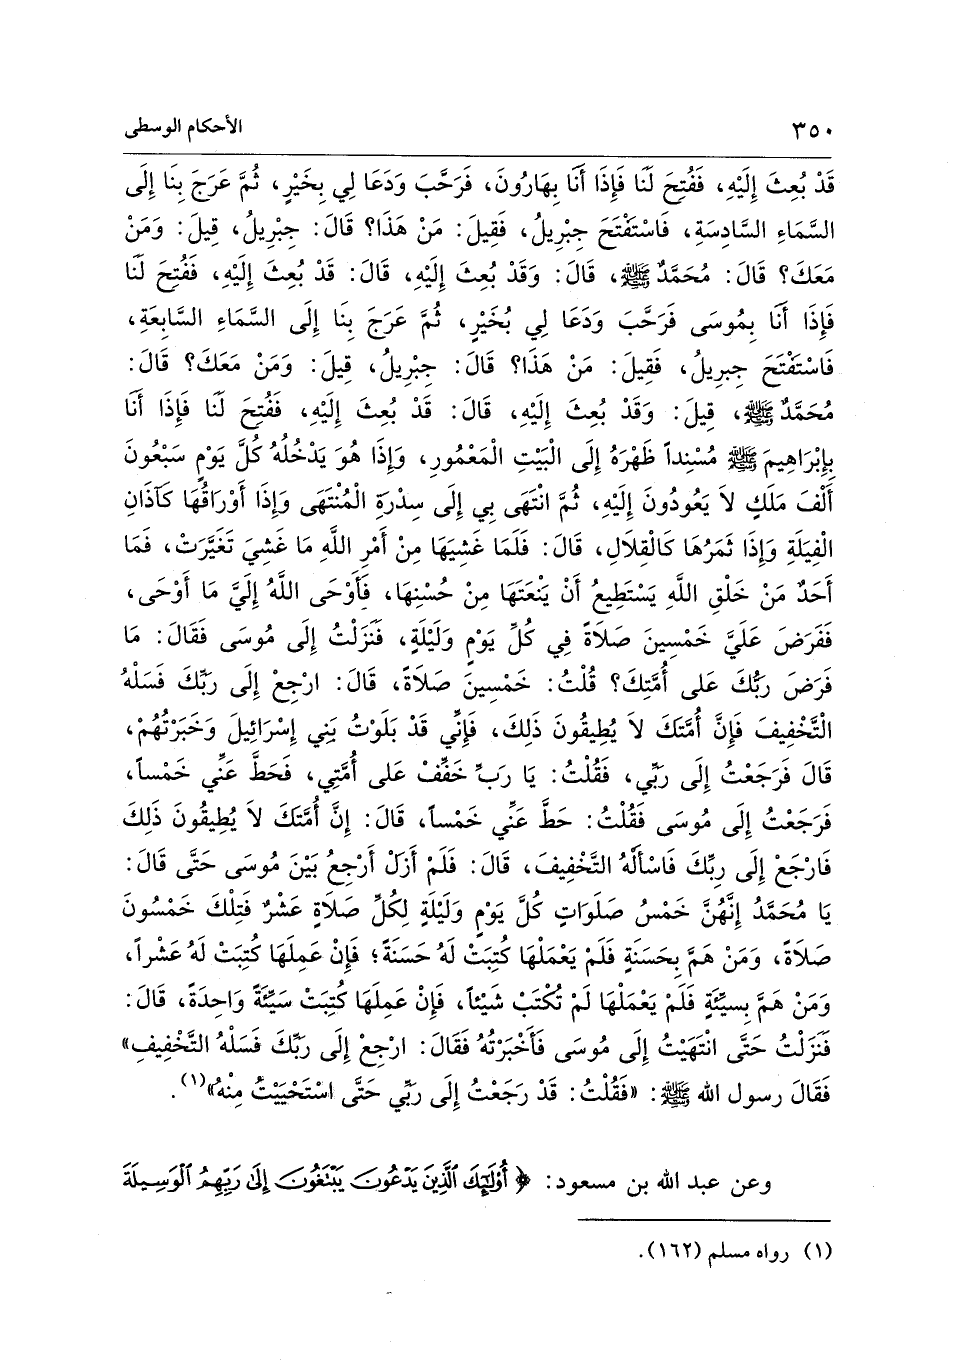 ٣٥٠ الأحكام الوسطى
قَدْ بُعِثَ إِلَيْهِ، فَفُتِحَ لَنَا فَإِذَا أَنَا بِهَارُونَ، فَرَحَّبَ وَدَعَا لِي بِخَيْرٍ، ثُمَّ عَرَجَ بِنَا إِلَى
السَّمَاءِ السَّادِسَةِ، فَاسْتَفْتَحَ جِبْرِيلُ، فَقِيلَ: مَنْ هَذَا؟ قَالَ: جِبْرِيلُ، قِيلَ: وَمَنْ
مَعَكَ؟ قَالَ: مُحَمَّدٌ ﷺ، قَالَ: وَقَدْ بُعِثَ إِلَيْهِ، قَالَ: قَدْ بُعِثَ إِلَيْهِ، فَفُتِحَ لَنَا
فَإِذَا أَنَا بِمُوسَى فَرَحَّبَ وَدَعَا لِي بُخَيْرٍ، ثُمَّ عَرَجَ بِنَا إِلَى السَّمَاءِ السَّابِعَةِ،
فَاسْتَفْتَحَ جِبرِيلُ، فَقِيلَ: مَنْ هَذَا؟ قَالَ: جِبْرِيلُ، قِيلَ: وَمَنْ مَعَكَ؟ قَالَ:
مُحَمَّدٌ ﷺ، قِيلَ: وَقَدْ بُعِثَ إِلَيْهِ، قَالَ: قَدْ بُعِثَ إِلَيْهِ، فَفُتِحَ لَنَا فَإِذَا أَنَا
بِإِبْرَاهِيمَ ﷺ مُسْنِداً ظَهْرَهُ إِلَى الْبَيْتِ الْمَعْمُورِ، وَإِذَا هُوَ يَدْخُلُهُ كُلَّ يَوْمٍ سَبْعُونَ
أَلْفَ مَلَكٍ لاَ يَعُودُونَ إِلَيْهِ، ثُمَّ انْتَهَى بِي إِلَى سِدْرَةِ الْمُنْتَهَى وَإِذَا أَوْرَاقُهَا كَآذَانِ
الْفِيَلَةِ وَإِذَا ثَمَرُهَا كَالْقِلاَلِ، قَالَ: فَلَمَا غَشِيَهَا مِنْ أَمْرِ اللَّهِ مَا غَشِيَ تَغَيَّرَتْ، فَمَا
أَحَدٌ مَنْ خَلْقِ اللَّهِ يَسْتَطِيعُ أَنْ يَنْعَتَهَا مِنْ حُسْنِهَا، فَأَوْحَى اللَّهُ إِلَيَّ مَا أَوْحَى،
فَفَرَضَ عَلَيَّ خَمْسِينَ صَلاَةً فِي كُلِّ يَوْمٍ وَلَيْلَةٍ، فَنَزَلْتُ إِلَى مُوسَى فَقَالَ: مَا
فَرَضَ رَبُّكَ عَلَى أُمَّتِكَ؟ قُلْتُ: خَمْسِينَ صَلاَةً، قَالَ: ارْجِعْ إِلَى رَبِّكَ فَسَلْهُ
التَّخْفِيفَ فَإِنَّ أُمَّتَكَ لاَ يُطِيقُونَ ذَلِكَ، فَإِنِّي قَدْ بَلَوْتُ بَنِي إِسْرَائِيلَ وَخَبَرْتُهُمْ،
قَالَ فَرَجَعْتُ إِلَى رَبِّي، فَقُلْتُ: يَا رَبِّ خَفِّفْ عَلَى أُمَّتِي، فَحَطَّ عَنِّي خَمْساً،
فَرَجَعْتُ إِلَى مُوسَى فَقُلْتُ: حَطَّ عَنِّي خَمْساً، قَالَ: إِنَّ أُمَّتَكَ لاَ يُطِيقُونَ ذَلِكَ
فَارْجَعْ إِلَى رِبِّكَ فَاسْأَلْهُ التَّخْفِيفَ، قَالَ: فَلَمْ أَزَلْ أَرْجِعُ بَيْنَ مُوسَى حَتَّى قَالَ:
يَا مُحَمَّدُ إِنَّهُنَّ خَمْسُ صَلَوَاتٍ كُلَّ يَوْمٍ وَلَيْلَةٍ لِكُلِّ صَلاَةٍ عَشْرٌ فَتِلْكَ خَمْسُونَ
صَلاَةً، وَمَنْ هَمَّ بِحَسَنَةٍ فَلَمْ يَعْمَلْهَا كُتِبَتْ لَهُ حَسَنَةً؛ فَإِنْ عَمِلَهَا كُتِبَتْ لَهُ عَشْراً،
وَمَنْ هَمَّ بِسيِّئَةٍ فَلَمْ يَعْمَلْهَا لَمْ تُكْتَبْ شَيْئاً، فَإِنْ عَمِلَهَا كُتِبَتْ سَيِّئَةً وَاحِدَةً، قَالَ:
فَنَزَلْتُ حَتَّى انْتَهَيْتُ إِلَى مُوسَى فَأَخْبَرْتُهُ فَقَالَ: ارْجِعْ إِلَى رَبِّكَ فَسَلْهُ التَّخْفِيفِ»
فَقَالَ رسول الله ﷺ: «فَقُلْتُ: قَدْ رَجَعْتُ إِلَى رَبِّي حَتَّى اسْتَحْيَيْتُ مِنْهُ»(١).
وعن عبد الله بن مسعود: ﴿أُوْلَٰٓئِكَ ٱلَّذِينَ يَدْعُونَ يَبْتَغُونَ إِلَىٰ رَبِّهِمُ ٱلْوَسِيلَةَ
(١) رواه مسلم (١٦٢).